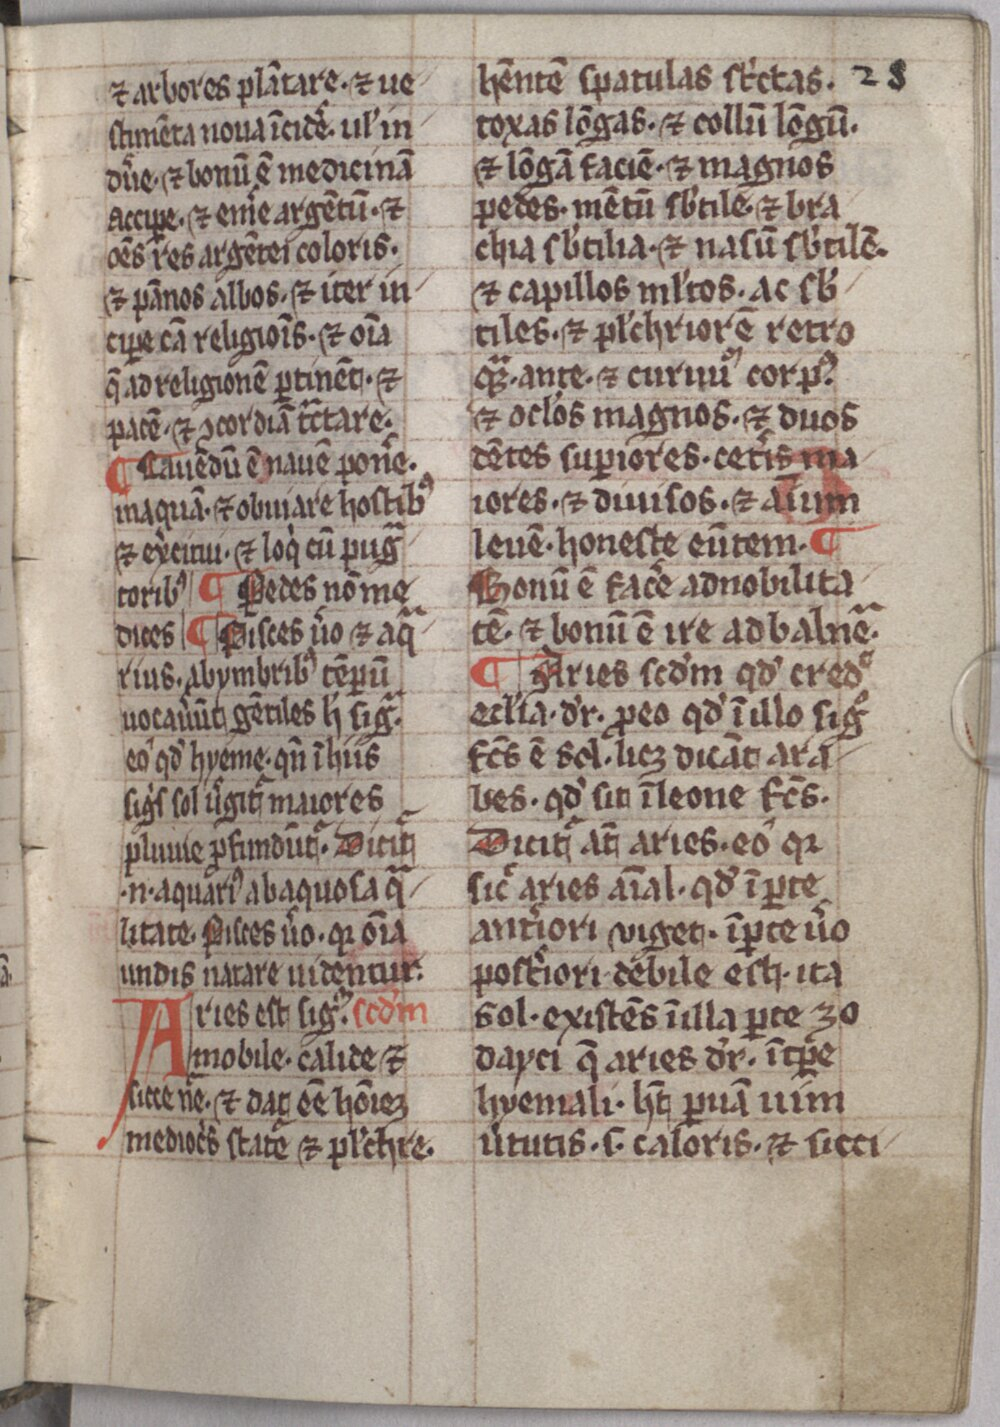 ⁊ arbores plātare· ⁊ ue
stimēta noua īcidē᷒· ul᷒ in
du᷒e· ⁊ bonū ē medicinā
accipe· ⁊ em᷒e argētū· ⁊
oēs res argētei coloris·
⁊ pānos albos· ⁊ iter in
cipe cā religiōīs· ⁊ oīa
q̄ ad religionē ꝑtinēt· ⁊
pacē· ⁊ ꝯcordiā tͣctare·
¶ Cauēdū ē nauē ponē᷒·
in aquā· ⁊ obuiare hostibꝰ
⁊ ex᷒citui· ⁊ loq̇ cū pugͣ
toribꝰ ¶ Pedes nō me
dices ¶ Pisces u᷒o ⁊ aqͣ
rius· ab ymbribꝰ tēpꝝ
uocauer᷒t gētiles h᷒ sigͣ·
eo᷒ qd᷒ hyeme· qn̄ ī hiis
sigīs sol u᷒git᷒ maiores
pluuie ꝓfundūt᷒· Dicit᷒
·n· aquariꝰ ab aquosa qͣ
litate· Pisces u᷒o· qꝛ oīa
undis natare uidentur·
Aries est sigͫ· scd᷒m
mobile· calide ⁊
sicce nͤ· ⁊ dat eē hōīeꝫ
mediocͥs statē᷒ ⁊ pul᷒chre·
28
hēntē spatulas st᷒ctas·
coxas lōgas· ⁊ collū lōgū·
⁊ lōgā faciē· ⁊ magnos
pedes· mētū sb᷒tilē· ⁊ bra
chia sb᷒tilia· ⁊ nasū sb᷒tilē·
⁊ capillos ml᷒tos· ac sb᷒
tiles· ⁊ pl᷒chriorē retro
qͣꝫ· ante· ⁊ curuūͫ corpꝰ
⁊ oc᷒los magnos· ⁊ duos
dētes superiores· cetīs ma
iores· ⁊ diuisos· ⁊ aīum
leuē· honeste eūtem· ¶
Bonū ē facē᷒ ad nobilita
tē· ⁊ bonū ē ire ad balneͣ·
¶ Aries scd᷒m qd᷒ credͭ
ecl᷒ia· dr᷒· ꝓ eo qd᷒ ī illo sigͦ
fc̄s ē sol· licꝫ dicāt ara
bes· qd᷒ sit ī leone fc̄s·
Dicit᷒ at̄ aries· eo᷒ qꝛ
sic᷒ aries aīal· qd᷒ ī ꝑte
ant᷒iori uiget· ī ꝑte u᷒o
post᷒iori debile est· ita
sol· existēs ī illa ꝑte zo
dayci q̄ aries dr᷒· ī tꝑe
hyemali· hꝫ ꝑuā uim
u᷒tutis· s· caloris· ⁊ sicci